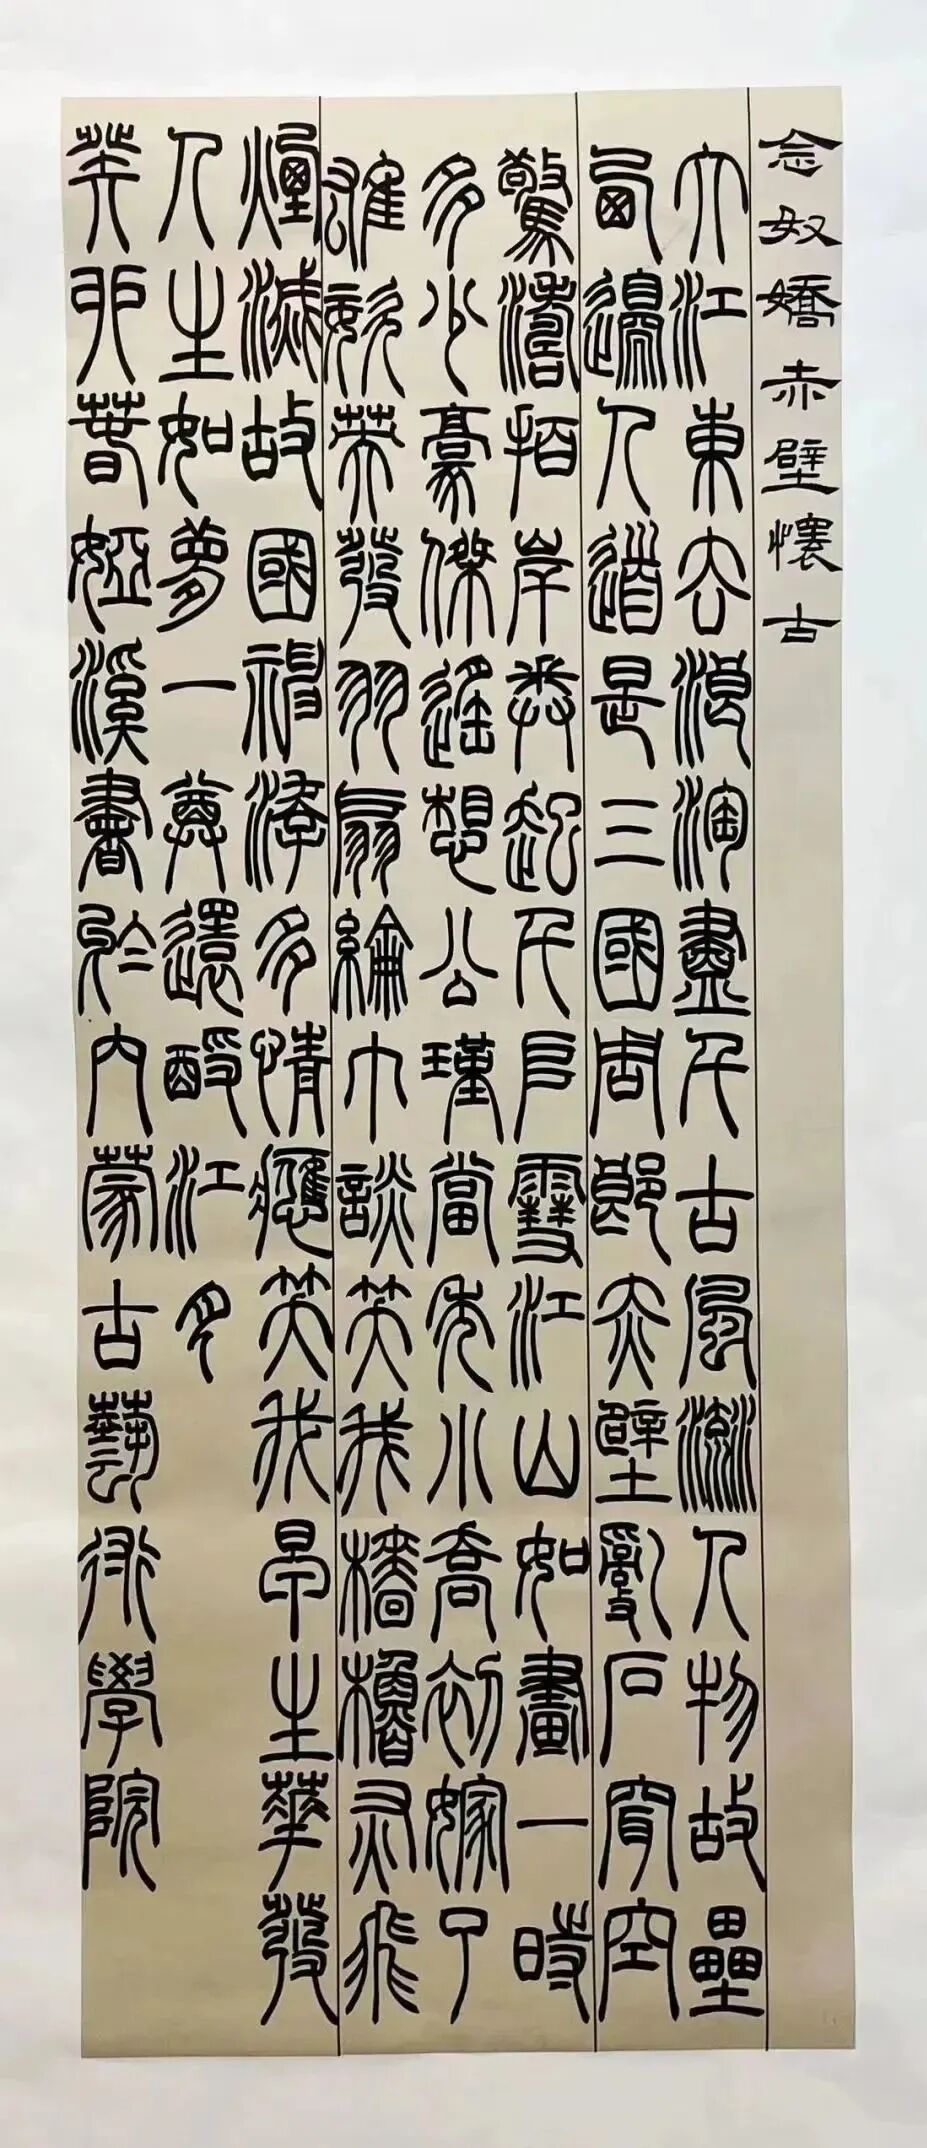 念奴嬌赤壁懷古
大江東去浪淘盡千古風流人物故壘
西邊人道是三國周郎赤壁亂石穿空
驚濤拍岸卷起千堆雪江山如畫一時
多少豪傑遙想公瑾當年小喬初嫁了
雄姿英發羽扇綸巾談笑我檣櫓灰飛
煙滅故國神游多情應笑我早生華發
人生如夢一尊還酹江月
癸卯春婭溪書於內蒙古藝術學院